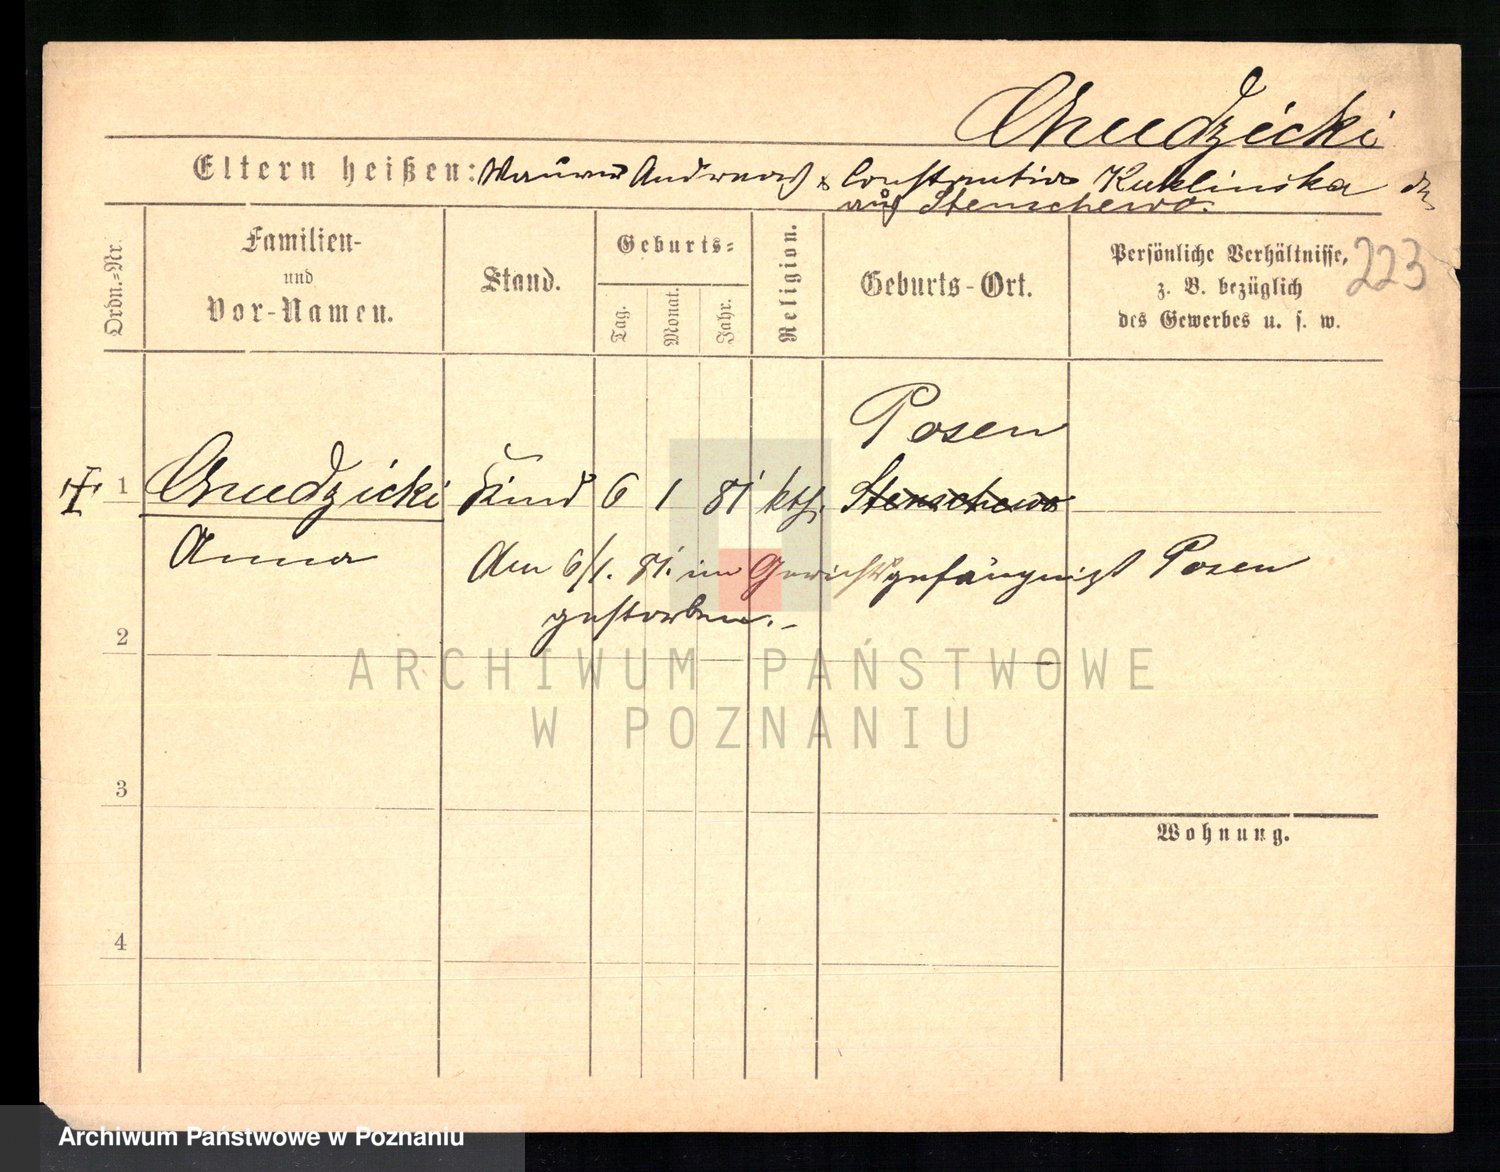 Chudzicki
Eltern heißen: Maurer Andreas & Constantia Kuklinska
aus Stenschewo.
Ordn.-Nr.
Familien-
und
Vor-Namen.
Stand.
Geburts-
Tag.
Monat.
Jahr.
Religion.
Geburts-Ort.
Persönliche Verhältnisse,
z. B. bezüglich
des Gewerbes u. s. w.
223
Posen
1 Chudzicki Kind 6 1 81 kth. Stenschewo
Anna
Am 6/1. 81. im Gerichtsgefängniß Posen
gestorben.-
2
3
4
Wohnung.
ARCHIWUM PAŃSTWOWE
W POZNANIU
Archiwum Państwowe w Poznaniu